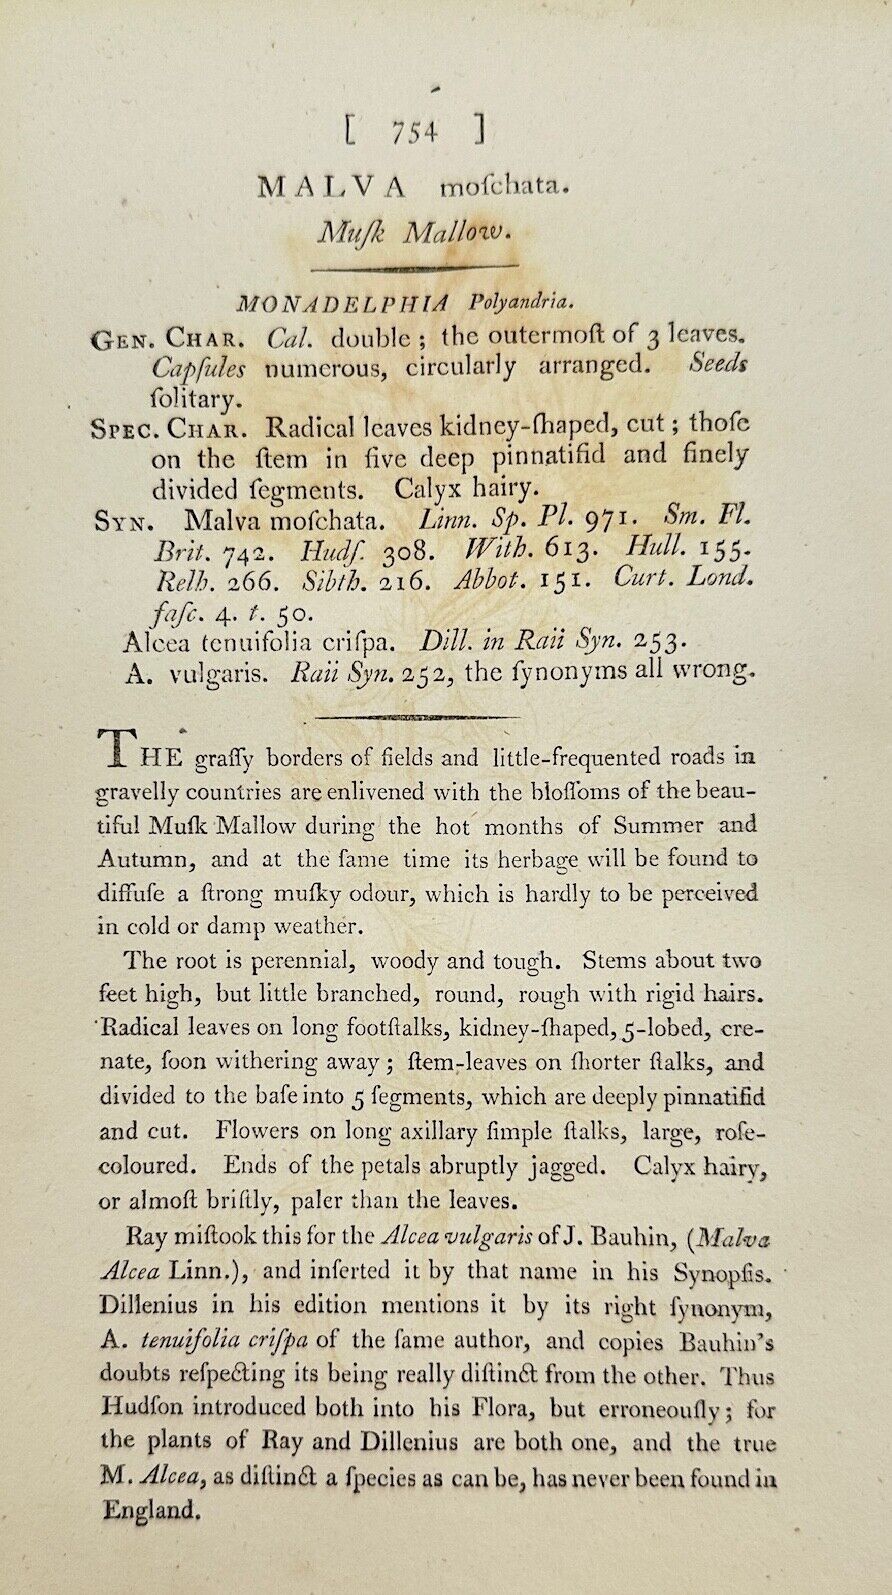 [ 754 ]
MALVA moſchata.
Muſk Mallow.
MONADELPHIA Polyandria.
GEN. CHAR. Cal. double; the outermoſt of 3 leaves.
Capſules numerous, circularly arranged. Seeds
ſolitary.
SPEC. CHAR. Radical leaves kidney-ſhaped, cut; thoſe
on the ſtem in five deep pinnatifid and finely
divided ſegments. Calyx hairy.
SYN. Malva moſchata. Linn. Sp. Pl. 971. Sm. Fl.
Brit. 742. Hudſ. 308. With. 613. Hull. 155.
Relh. 266. Sibth. 216. Abbot. 151. Curt. Lond.
faſc. 4. t. 50.
Alcea tenuifolia criſpa. Dill. in Raii Syn. 253.
A. vulgaris. Raii Syn. 252, the ſynonyms all wrong.
THE graſſy borders of fields and little-frequented roads in
gravelly countries are enlivened with the bloſſoms of the beau-
tiful Muſk Mallow during the hot months of Summer and
Autumn, and at the ſame time its herbage will be found to
diffuſe a ſtrong muſky odour, which is hardly to be perceived
in cold or damp weather.
The root is perennial, woody and tough. Stems about two
feet high, but little branched, round, rough with rigid hairs.
Radical leaves on long footſtalks, kidney-ſhaped, 5-lobed, cre-
nate, ſoon withering away; ſtem-leaves on ſhorter ſtalks, and
divided to the baſe into 5 ſegments, which are deeply pinnatifid
and cut. Flowers on long axillary ſimple ſtalks, large, roſe-
coloured. Ends of the petals abruptly jagged. Calyx hairy,
or almoſt briſtly, paler than the leaves.
Ray miſtook this for the Alcea vulgaris of J. Bauhin, (Malva
Alcea Linn.), and inſerted it by that name in his Synopſis.
Dillenius in his edition mentions it by its right ſynonym,
A. tenuifolia criſpa of the ſame author, and copies Bauhin's
doubts reſpecting its being really diſtinct from the other. Thus
Hudſon introduced both into his Flora, but erroneouſly; for
the plants of Ray and Dillenius are both one, and the true
M. Alcea, as diſtinct a ſpecies as can be, has never been found in
England.